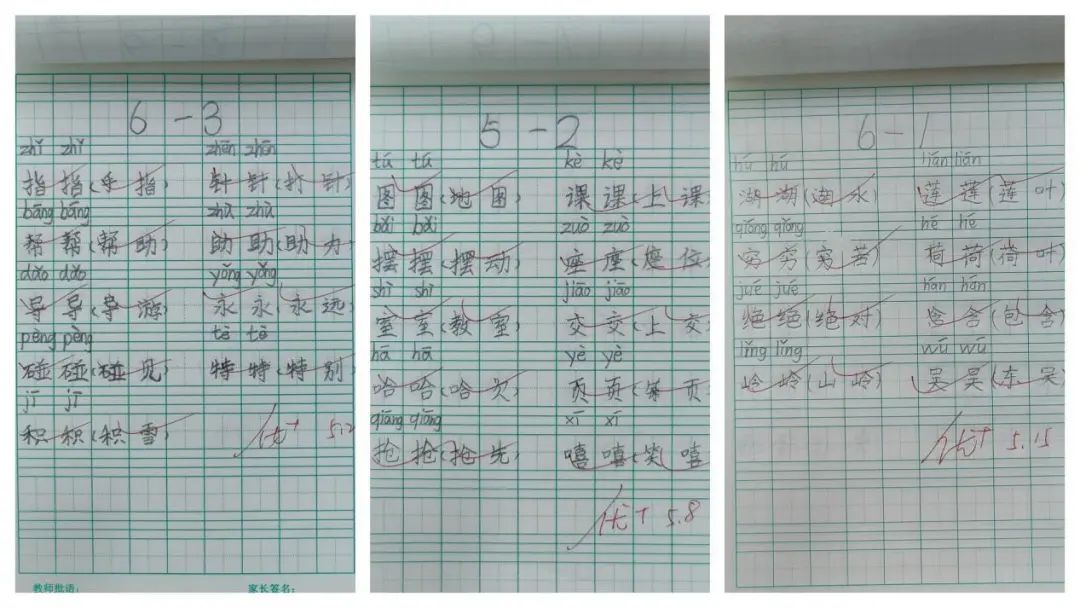 6-3
zhǐ zhǐ zhēn zhēn
指指(手指) 针针(打针)
bāng bāng zhù zhù
帮帮(帮助) 助助(助力)
dǎo dǎo yǒng yǒng
导导(导游) 永永(永远)
pèng pèng tè tè
碰碰(碰见) 特特(特别)
jī jī
积积(积雪) 优+
教师批语: 家长签名:
5-2
tú tú kè kè
图图(地图) 课课(上课
bǎi bǎi zuò zuò
摆摆(摆动) 座座(座位
shì shì jiāo jiāo
室室(教室) 交交(上交
hā hā yè yè
哈哈(哈欠) 页页( 页
qiǎng qiǎng xī xī
抢抢(抢先) 嘻嘻(笑嘻
优+ 5.8
6-1
hú hú lián lián
湖湖(湖水) 莲莲(莲叶)
qióng qióng hé hé
穷穷(穷苦) 荷荷(荷叶)
jué jué hán hán
绝绝(绝对) 含含(包含)
lǐng lǐng wú wú
岭岭(山岭) 吴吴(东吴)
优+ 5.15